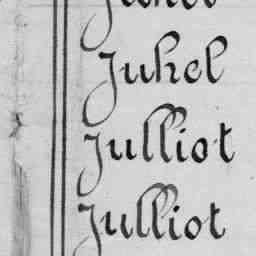 Juhel
Julliot
Julliot